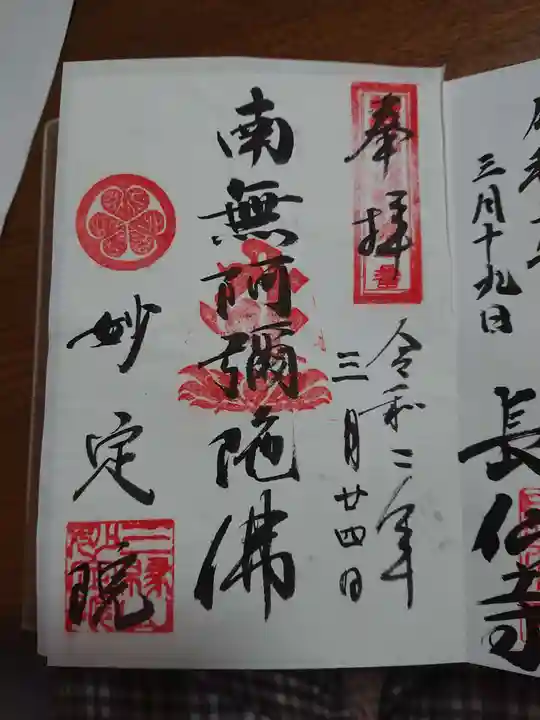 三月十九日
長仁寺
奉拝
令和二年
三月廿四日
南無阿彌陀佛
妙定院